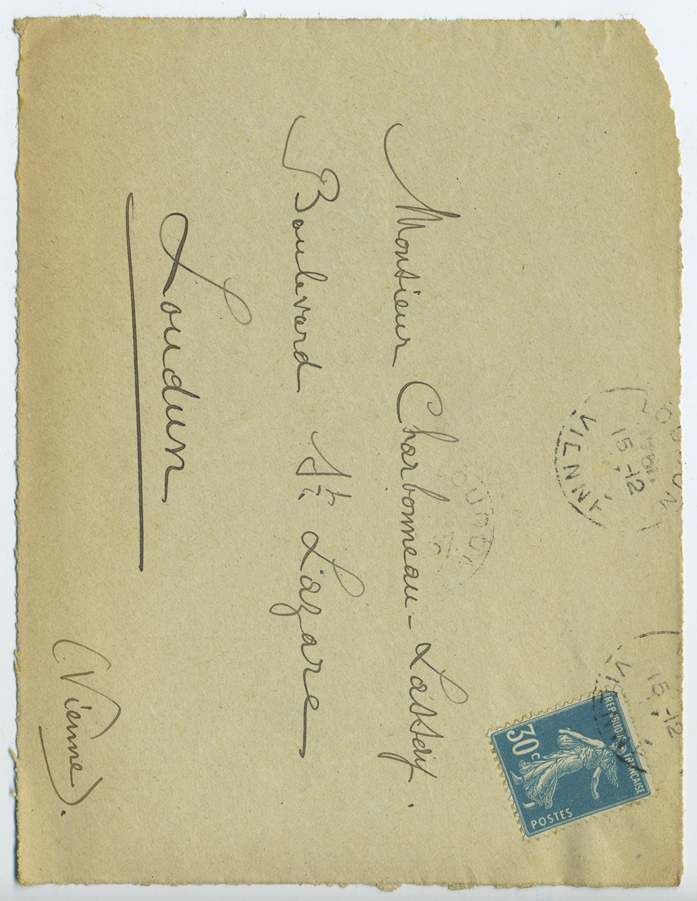 Monsieur Charbonneau-Lassay.
Boulevard St Lazare
Loudun
(Vienne).
15-12
VIENNE
15-12
REPUBLIQUE FRANÇAISE
30c
POSTES